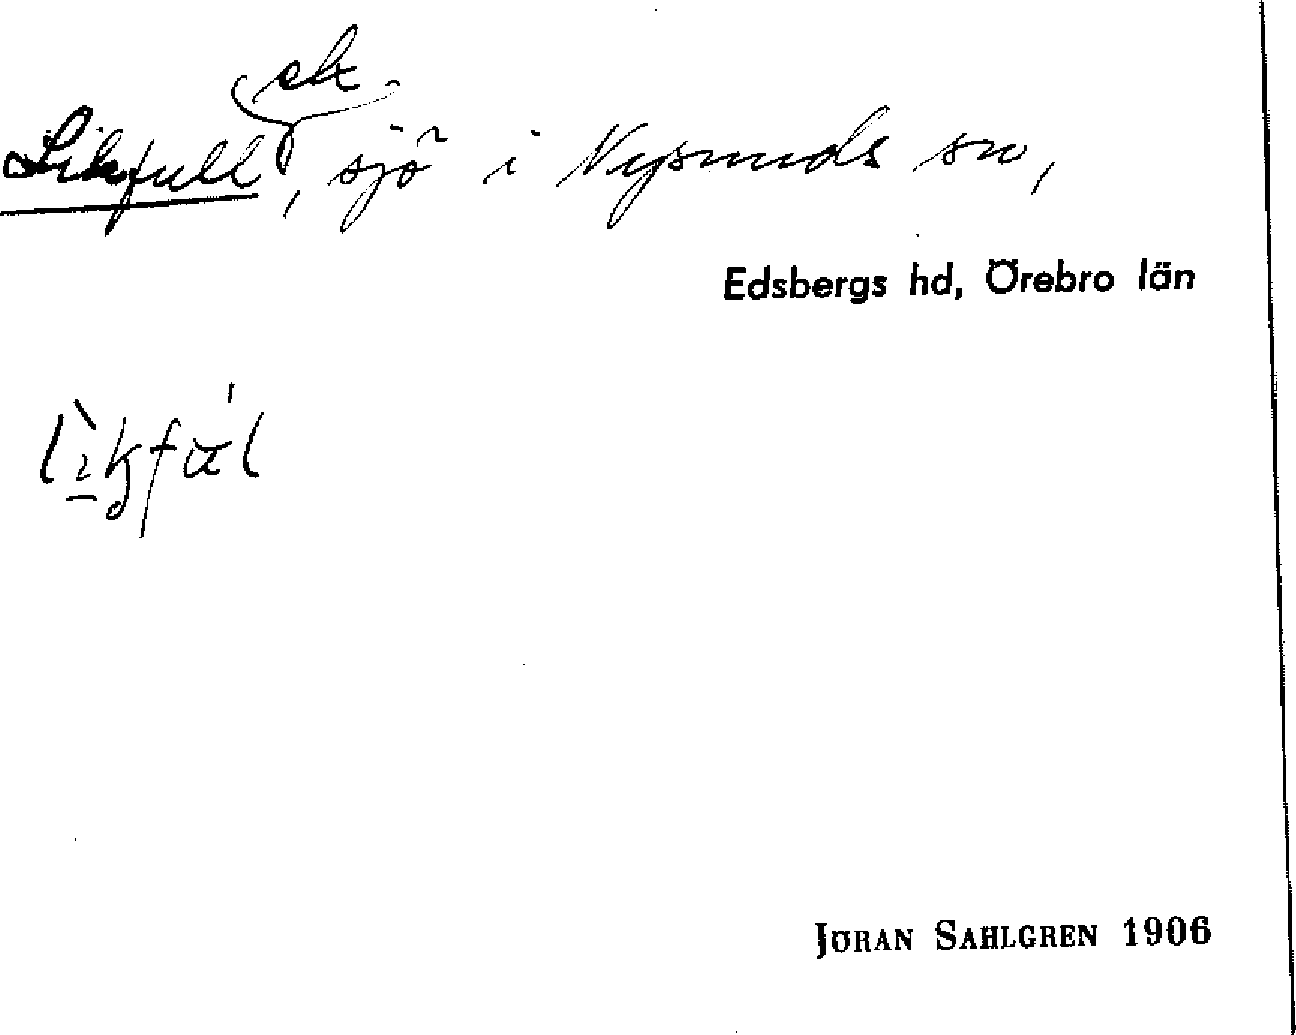 ek.
Likfull, sjö i Nysunds sn,
Edsbergs hd, Örebro län
JÖRAN SAHLGREN 1906